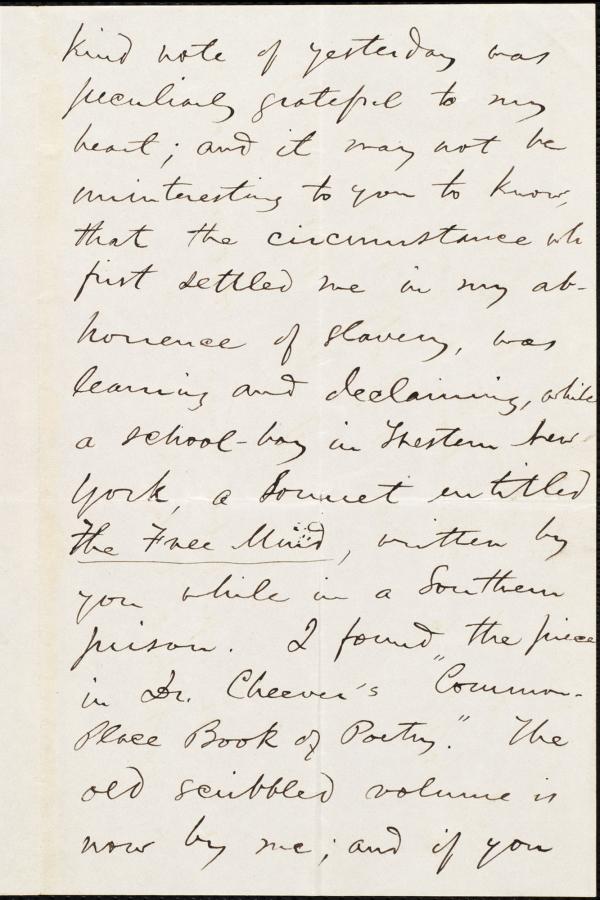 kind note of yesterday was
peculiarly grateful to my
heart; and it may not be
uninteresting to you to know,
that the circumstance wh
first settled me in my ab-
horrence of slavery, was
learning and declaiming, while
a school-boy in Western New
York, a Sonnet entitled
The Free Mind, written by
you while in a Southern
prison. I found the piece
in Dr. Cheever's "Common-
Place Book of Poetry." The
old scribbled volume is
now by me; and if you